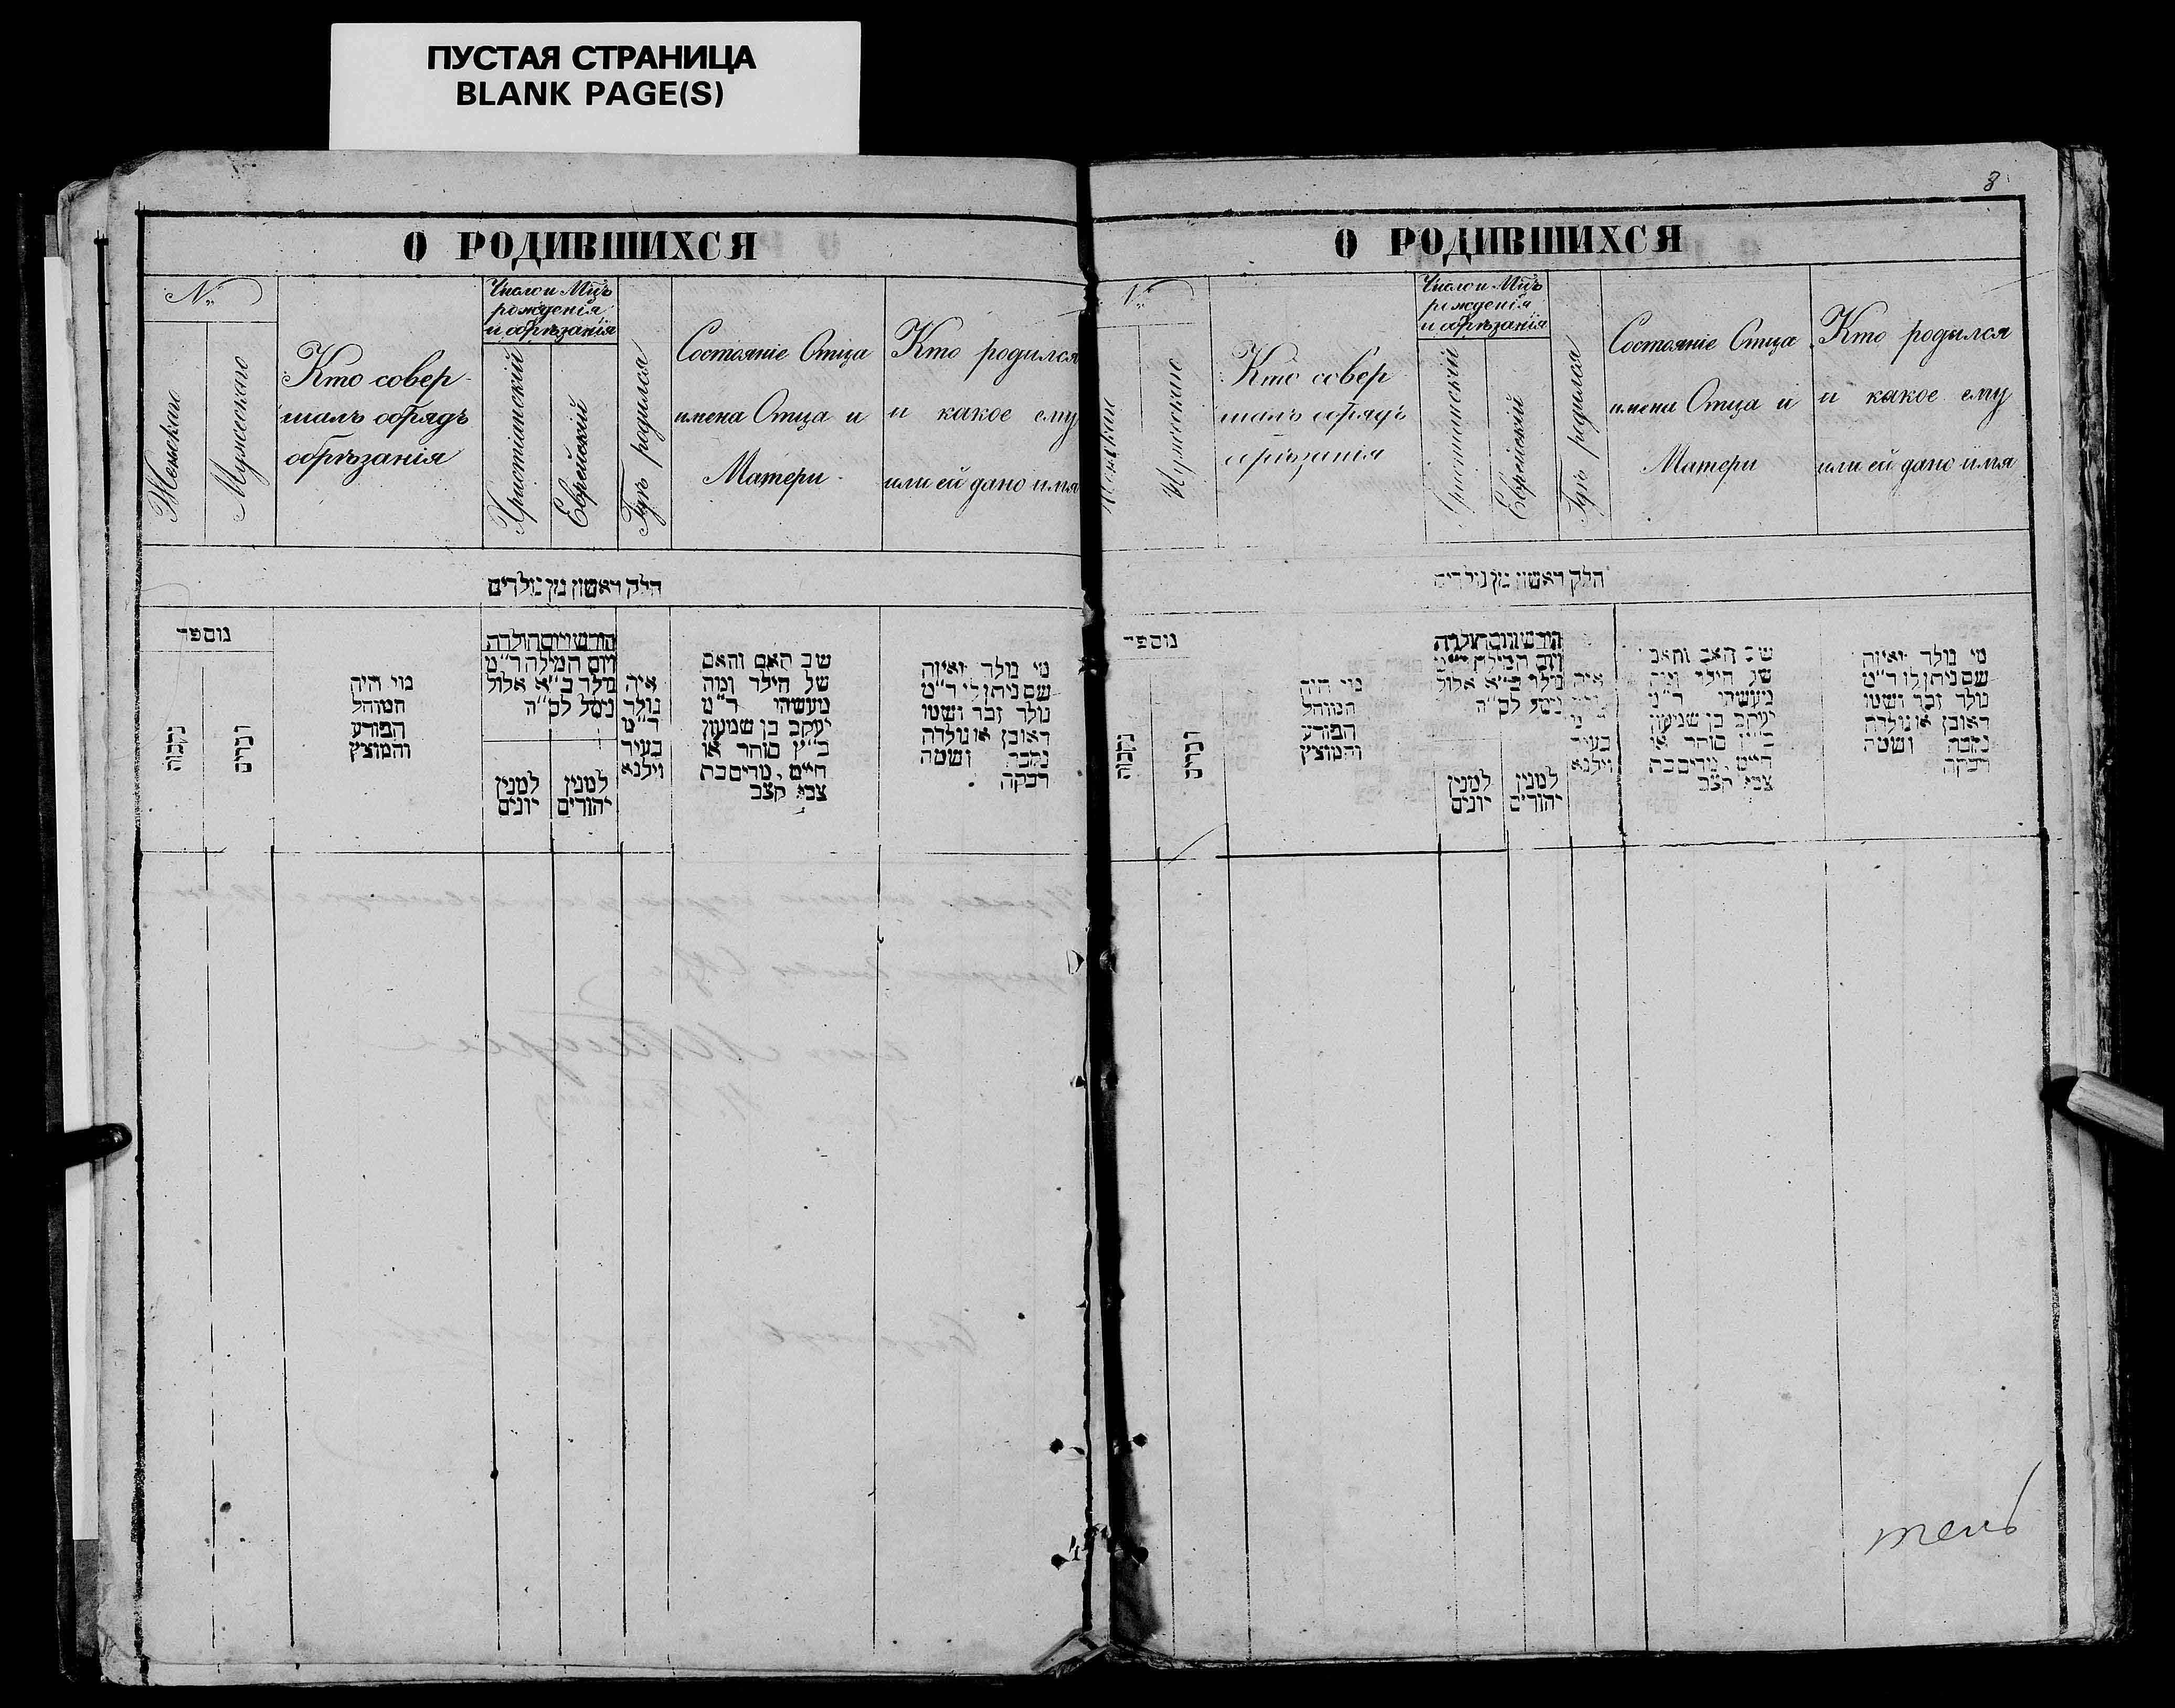 ПУСТАЯ СТРАНИЦА
BLANK PAGE(S)
О РОДИВШИХСЯ
№
Женскаго
Мужескаго
Кто совер-
шалъ обрядъ
обрѣзанія
Число и Мцъ
рожденія
и обрѣзанія
Христіанскій
Еврейскій
Гдѣ родился
Состояніе Отца
имена Отца и
Матери
Кто родился
и какое ему
или ей дано имя
חלק ראשון מן נולדים
נוספר
נקבות
זכרים
מי היה
המוהל
הפורע
והמוצץ
חודש ויום הולדה
ויום המילה ד״מ
נולד כ״א אלול
ניסל לס״ה
למנין
יונים
למנין
יהודים
איה
נולד
ד״מ
בעיר
וילנא
שם האב והאם
של הילד ומה
מעשהו ד״מ
יעקב בן שמעון
כ״ץ סוחר או
חיים, מרים בת
צבי קצב
מי נולד ואיזה
שם ניתן לו ד״מ
נולד זכר ושמו
ראובן או נולדה
נקבה ושמה
רבקה
3
О РОДИВШИХСЯ
№
Женскаго
Мужескаго
Кто совер
шалъ обрядъ
обрѣзанія
Число и Мцъ
рожденія
и обрѣзанія
Христіанскій
Еврейскій
Гдѣ родился
Состояніе Отца
имена Отца и
Матери
Кто родился
и какое ему
или ей дано имя
חלק ראשון מן נולדים
נוספר
נקבות
זכרים
מי היה
המוהל
הפורע
והמוצץ
חודש ויום הולדה
ויום המילה ד״מ
נולד כ״א אלול
ניסל לס״ה
למנין
יונים
למנין
יהודים
איה
נולד
ד״מ
בעיר
וילנא
שם האב והאם
של הילד ומה
מעשהו ד״מ
יעקב בן שמעון
כ״ץ סוחר או
חיים, מרים בת
צבי קצב
מי נולד ואיזה
שם ניתן לו ד״מ
נולד זכר ושמו
ראובן או נולדה
נקבה ושמה
רבקה